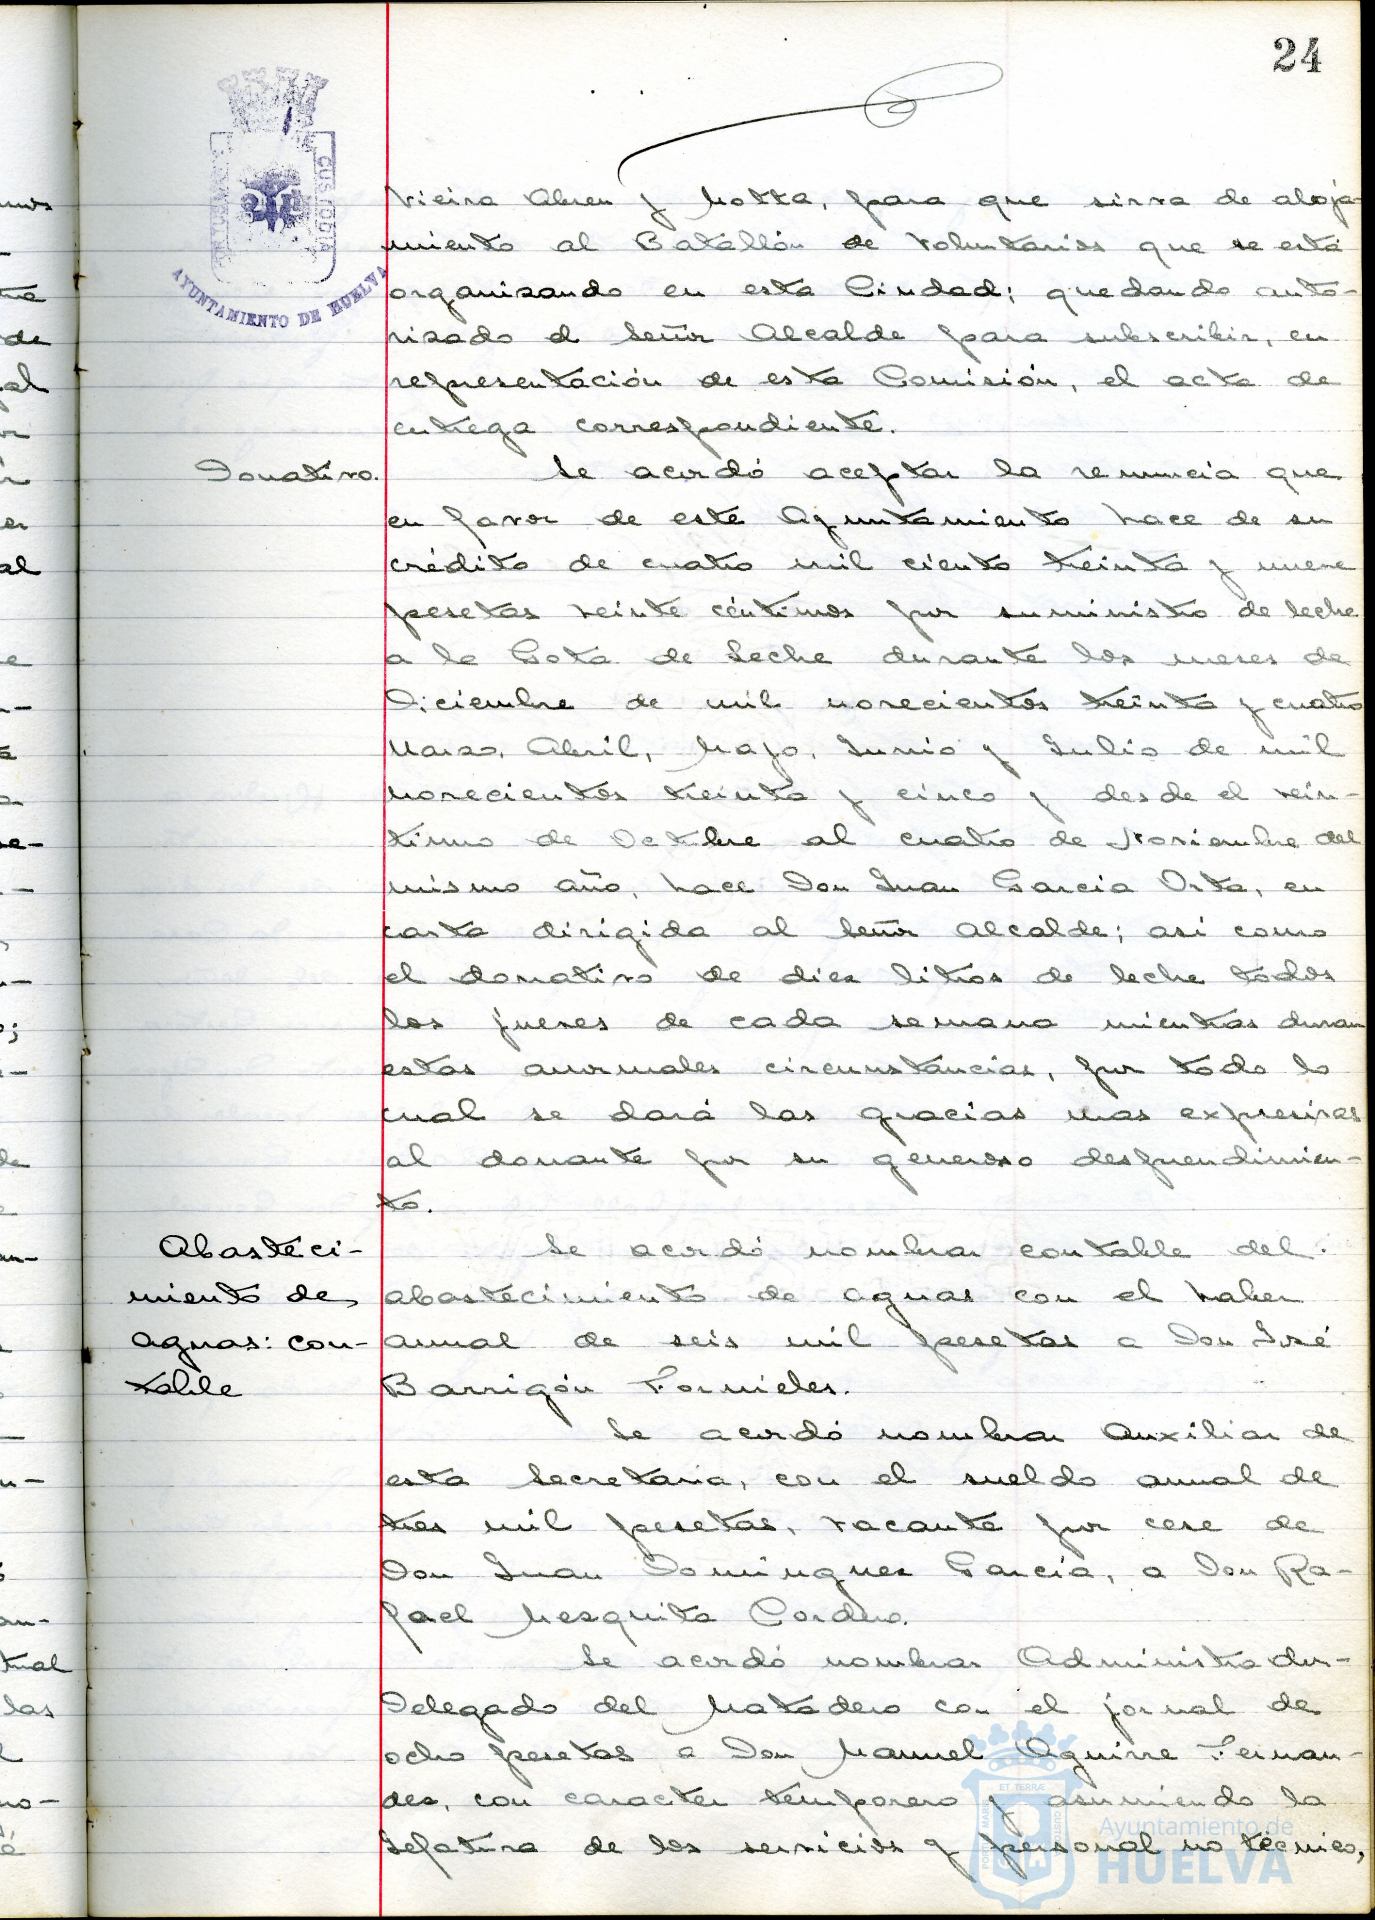 24
CUSTODIA
AYUNTAMIENTO DE HUELVA
Vieira Abreu y Motta, para que sirva de aloja-
miento al Batallón de Voluntarios que se está
organizando en esta Ciudad; quedando auto-
rizado el Señor Alcalde para subscribir, en
representación de esta Comisión, el acta de
entrega correspondiente.
Donativo. Se acordó aceptar la renuncia que
en favor de este Ayuntamiento hace de su
crédito de cuatro mil ciento treinta y nueve
pesetas veinte céntimos por suministro de leche
a la Gota de Leche durante los meses de
Diciembre de mil novecientos treinta y cuatro
Marzo, Abril, Mayo, Junio y Julio de mil
novecientos treinta y cinco y desde el vein-
tiuno de Octubre al cuatro de Noviembre del
mismo año, hace Don Juan García Orta, en
carta dirigida al Señor Alcalde; así como
el donativo de diez litros de leche todos
los jueves de cada semana mientras duran
estas anormales circunstancias, por todo lo
cual se dará las gracias mas expresivas
al donante por su generoso desprendimien-
to.
Abasteci- Se acordó nombrar contable del
miento de abastecimiento de aguas con el haber
aguas: con- anual de seis mil pesetas a Don José
table Barrigón Fornieles.
Se acordó nombrar Auxiliar de
esta Secretaría, con el sueldo anual de
tres mil pesetas, vacante por cese de
Don Juan Domínguez García, a Don Ra-
fael Mezquita Cordero.
Se acordó nombrar Administrador-
Delegado del Matadero con el jornal de
ocho pesetas a Don Manuel Aguirre Fernan-
dez, con caracter temporero y asumiendo la
Jefatura de los servicios y personal no técnico,
Ayuntamiento de
HUELVA